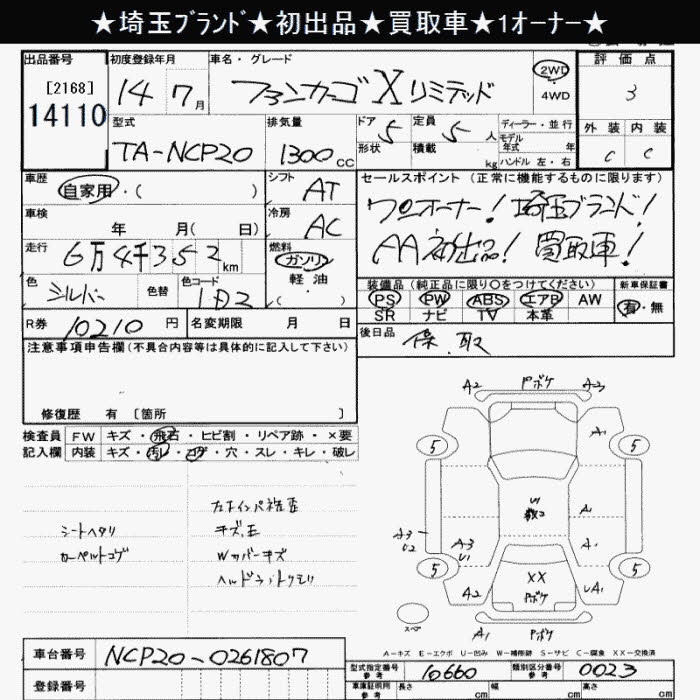 ★埼玉ﾌﾞﾗﾝﾄﾞ★初出品★買取車★1オーナー★
出品番号
[2168]
14110
初度登録年月
14 7月
車名・グレード
ファンカーゴ X リミテッド
2WD
4WD
評価点
3
外装 内装
C C
型式
TA-NCP20
排気量
1300cc
ドア 5
形状
定員 5人
積載 kg
ディーラー・並行
モデル
年式 年
ハンドル 左・右
車歴
自家用・( )
シフト
AT
セールスポイント (正常に機能するものに限ります)
ワンオーナー!埼玉ブランド!
AA初出品!買取車!
車検
年 月( 日)
冷房
AC
走行
6万4千352km
燃料
ガソリン
軽・油
( )
色
シルバー
色替
色コード
1D2
装備品 (純正品に限り○をつけてください)
PS PW ABS エアB AW
SR ナビ TV 本革
新車保証書
有・無
R券 10210円
名変期限 月 日
後日品
保.取
注意事項申告欄(不具合内容等は具体的に記入して下さい)
修復歴 有 [箇所 ]
検査員
記入欄
FW キズ・飛石・ヒビ割・リペア跡・×要
内装 キズ・汚レ・コゲ・穴・スレ・キレ・破レ
シートヘタリ
カーペットコゲ
キズ、王
Wカバーキズ
ヘッドライトクモリ
A2 Pボケ A3
5 5
A1
U1
数コ
A1
A3
U2
A3
U1
A1
5 5
XX
Pボケ
A2 UA1
スペア
A1 Pボケ
A−キズ E−エクボ U−凹み W−補修跡 S−サビ C−腐食 XX−交換済
車台番号
NCP20-0261807
登録番号
型式指定番号
参考
10660
類別区分番号
参考
0023
車庫証明用
参考
長さ cm
幅 cm
高さ cm